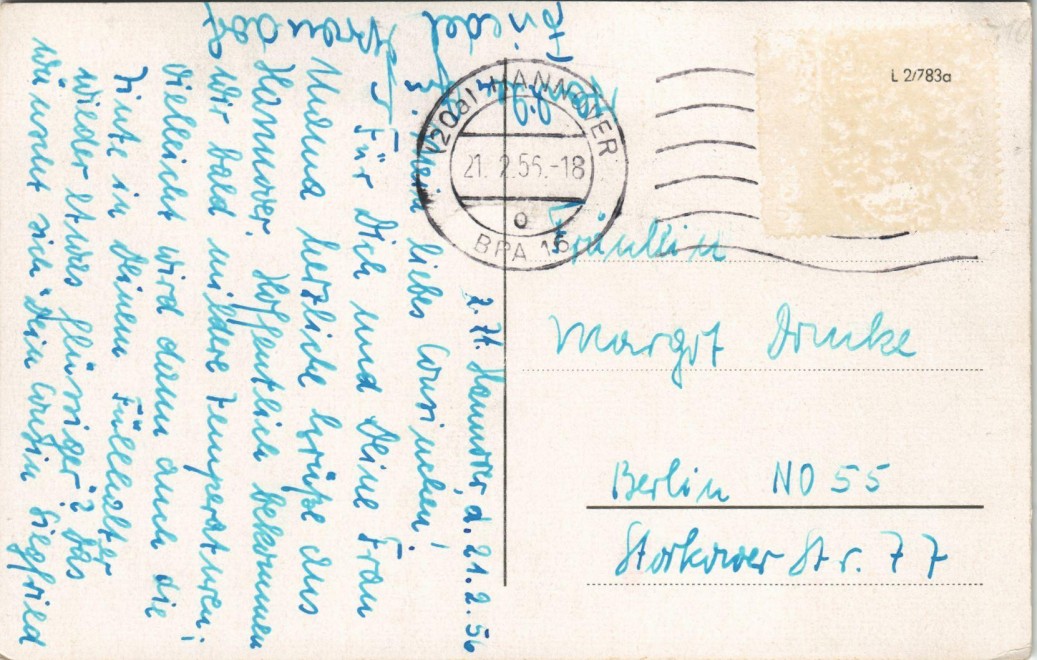 z. Zt. Hannover, d. 21.2.56
Mein liebes Cousinchen!
Für Dich und Deine Frau
Mama herzliche Grüße aus
Hannover. Hoffentlich bekommen
wir bald mildere Temperaturen;
vielleicht wird dann auch die
Tinte in Deinem Füllhalter
wieder etwas flüssiger? Das
wünscht sich Dein Cousin Siegfried
(20a) HANNOVER
21. 2.56.-18
o
BPA 16
L 2/783a
Fräulein
Margot
Berlin NO 55
Storkower Str. 77